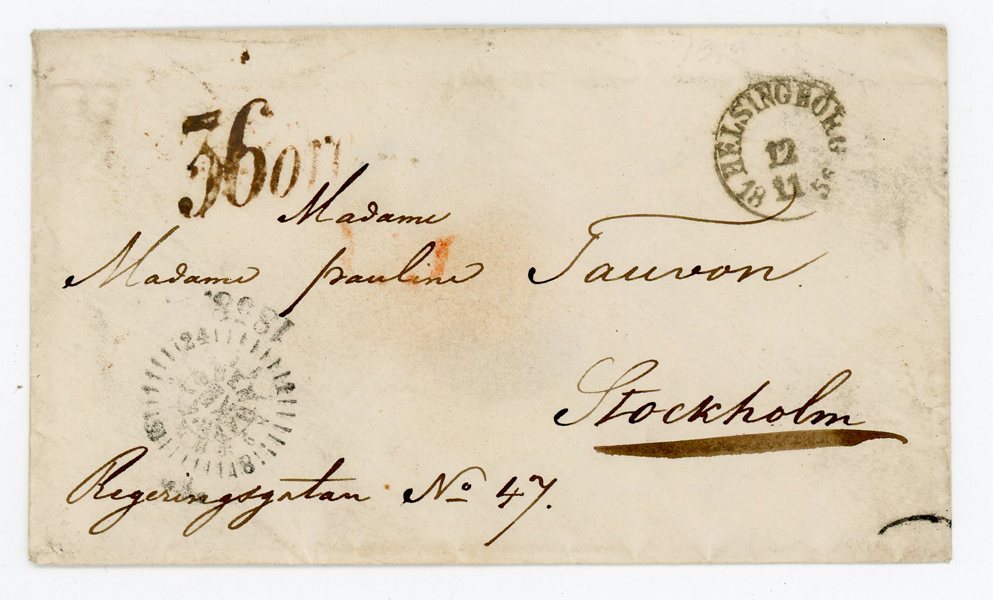 HELSINGBORG
12
11
18 58
36 öre
Madame
Madame pauline Tauvon.
1858.
24
18
Stockholm
Regeringsgatan No 47.